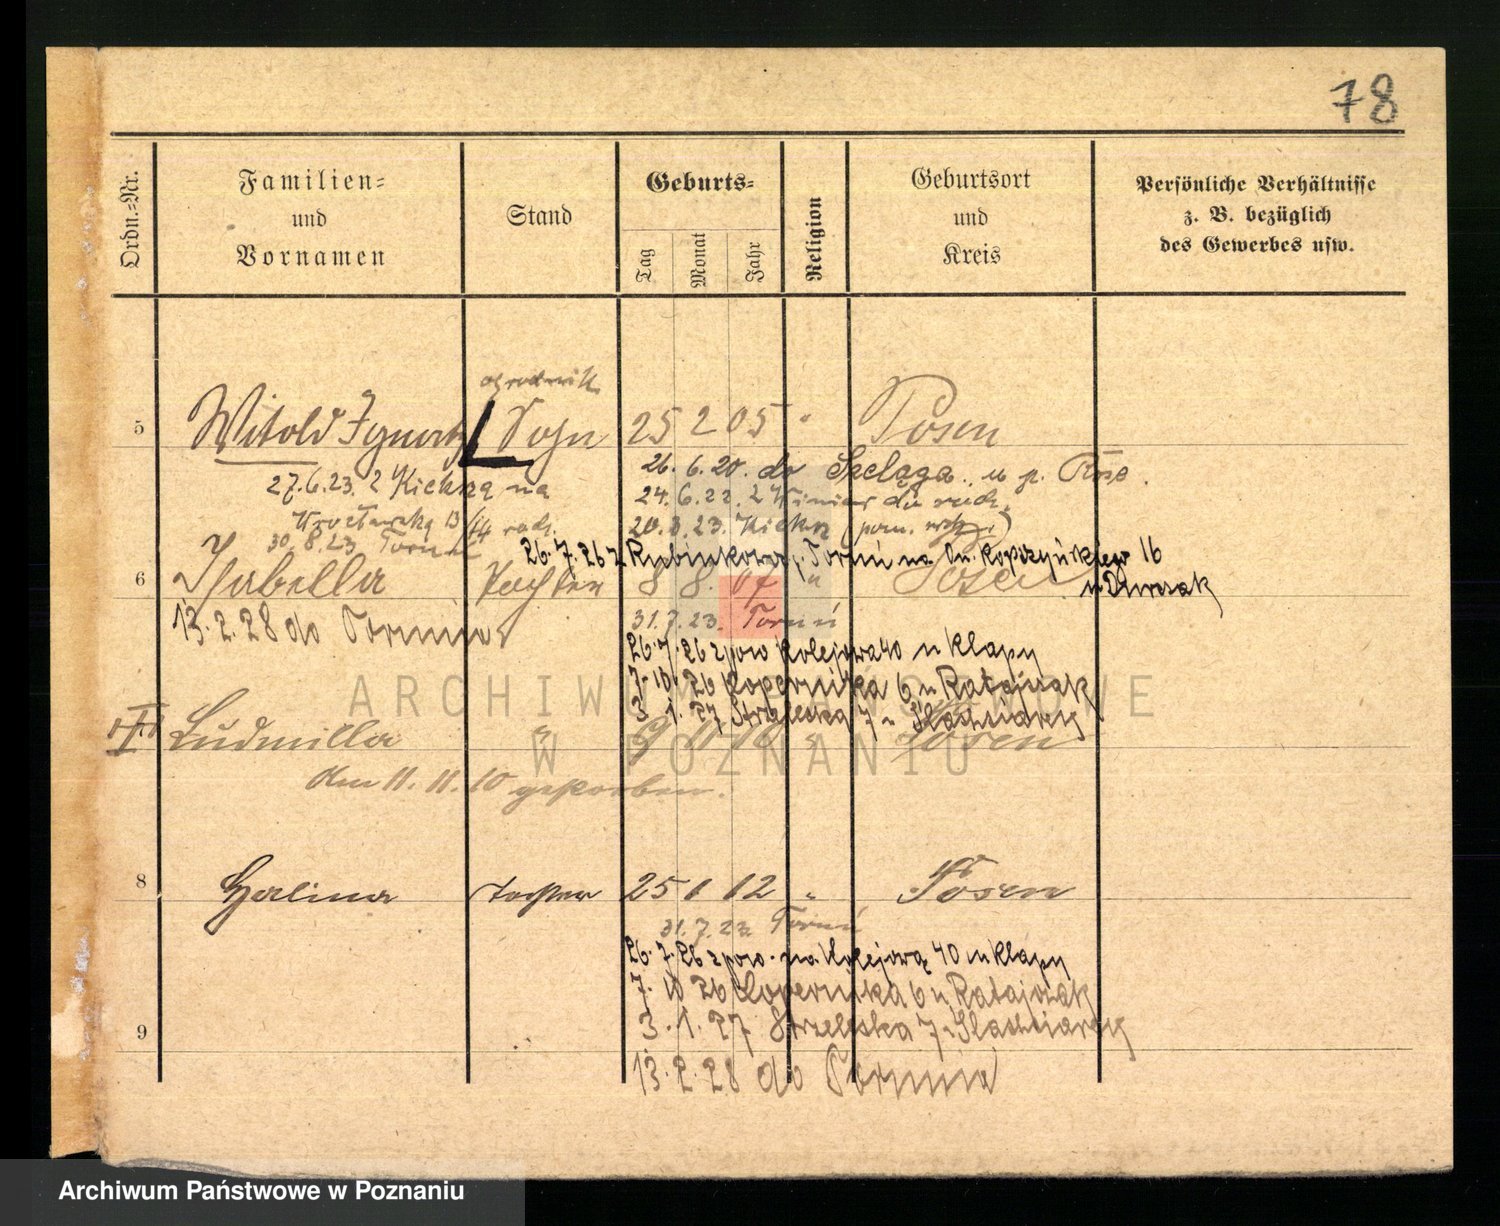 78
Ordn.-Nr.
Familien-
und
Vornamen
Stand
Geburts-
Tag
Monat
Jahr
Religion
Geburtsort
und
Kreis
Persönliche Verhältnisse
z. B. bezüglich
des Gewerbes usw.
ogrodnik
5 Witold Ignatz Sohn 25 2 05 " Posen
26. 6. 20. do Szeląga u p.
27.6.23. z Kiekrza na
24. 6. 22. z Winiar do rodz.
Wrocławską 13/14 rodz.
20. 3. 23. Kiekrz
30. 8. 23 Toruń
26. 7. 26 z Rubinkowa, Toruń na 16
6 Isabella Tochter 8 8. 07 " Posen
u Dworzak
13. 2. 28 do Torunia
31. 7. 23. Toruń
26. 7. 26 z pow Kolejowa 40 u Klapy
7. 10. 26 Kopernika 6 u Ratajczak
3. 1. 27 Strzelecka 7 u
7 Ludmilla " 9 11 10 " Posen
den 11. 11. 10 gestorben.
8 Halina Tochter 25 1 12 " Posen
31. 7. 23 Toruń
26. 7. 26 z pow. na Kolejową 40 u Klapy
7. 10 26 Kopernika 6 u Ratajczak
3. 1. 27 Strzelecka 7 u
9
13. 2. 28 do Torunia
ARCHIWUM PAŃSTWOWE
W POZNANIU
Archiwum Państwowe w Poznaniu